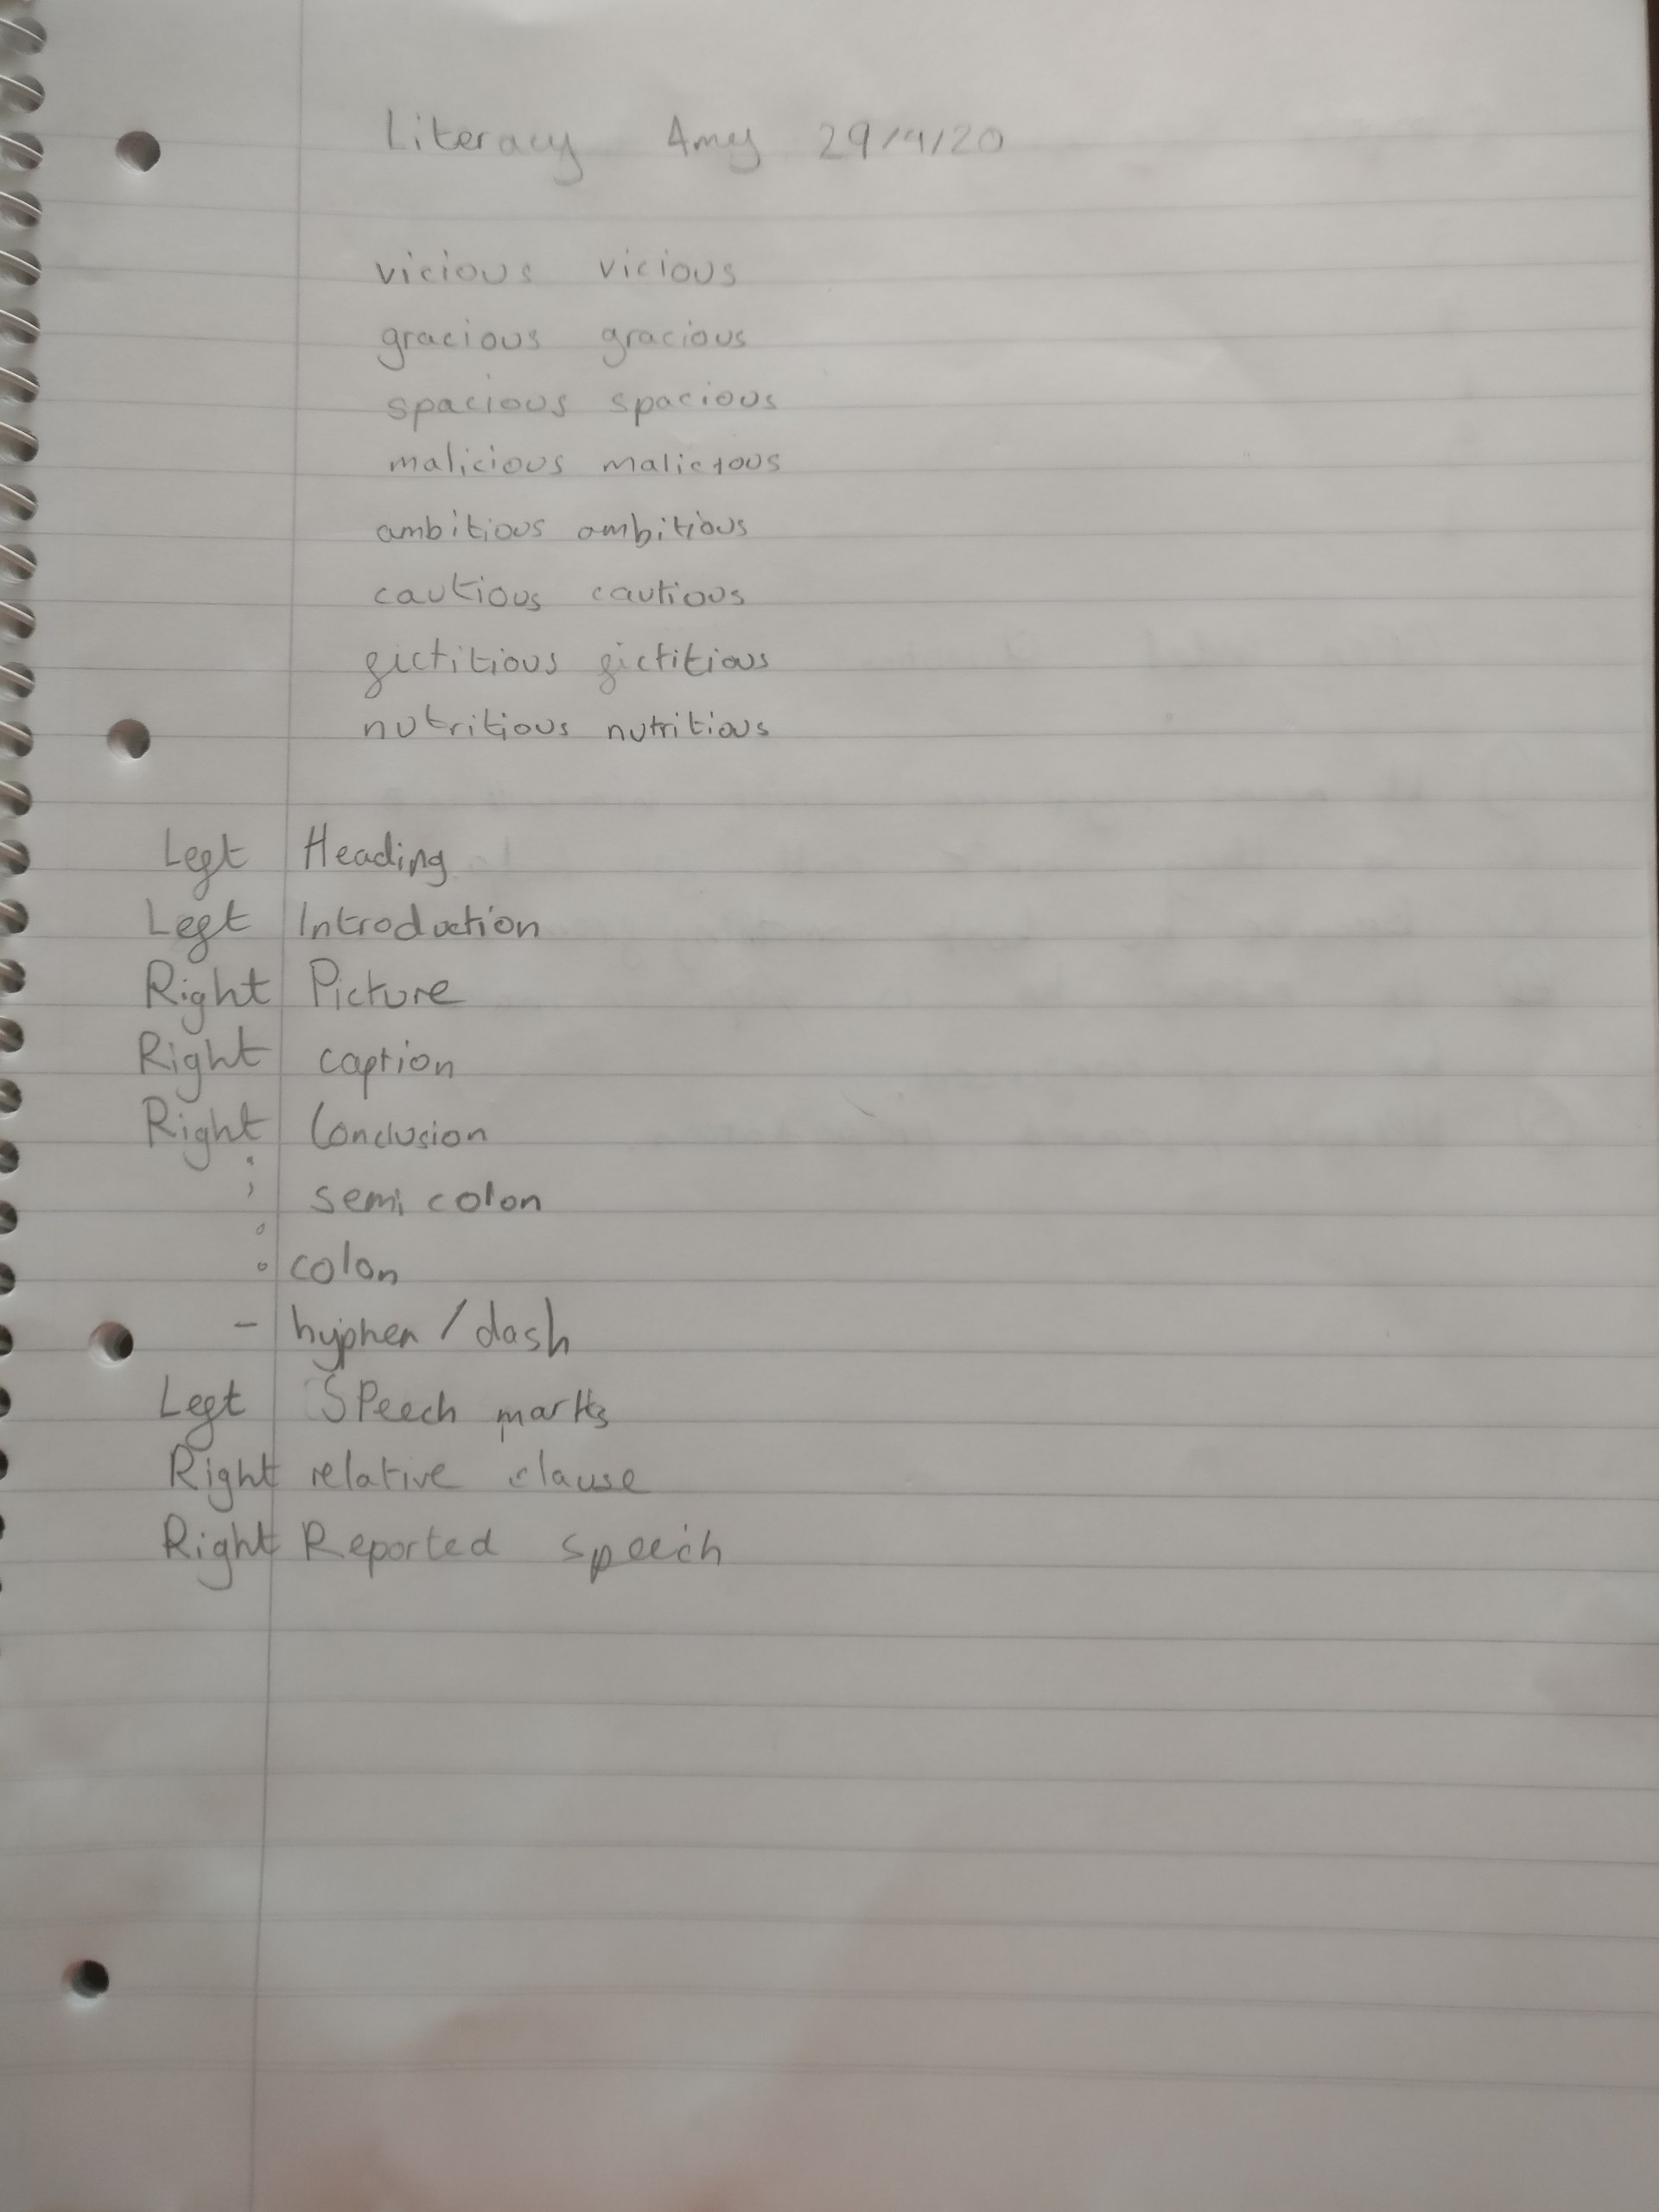 Literacy Amy 29/4/20
vicious vicious
gracious gracious
spacious spacious
malicious malicious
ambitious ambitious
cautious cautious
fictitious fictitious
nutritious nutritious
Left Heading
Left Introduction
Right Picture
Right caption
Right Conclusion
; semi colon
: colon
- hyphen / dash
Left Speech marks
Right relative clause
Right Reported speech